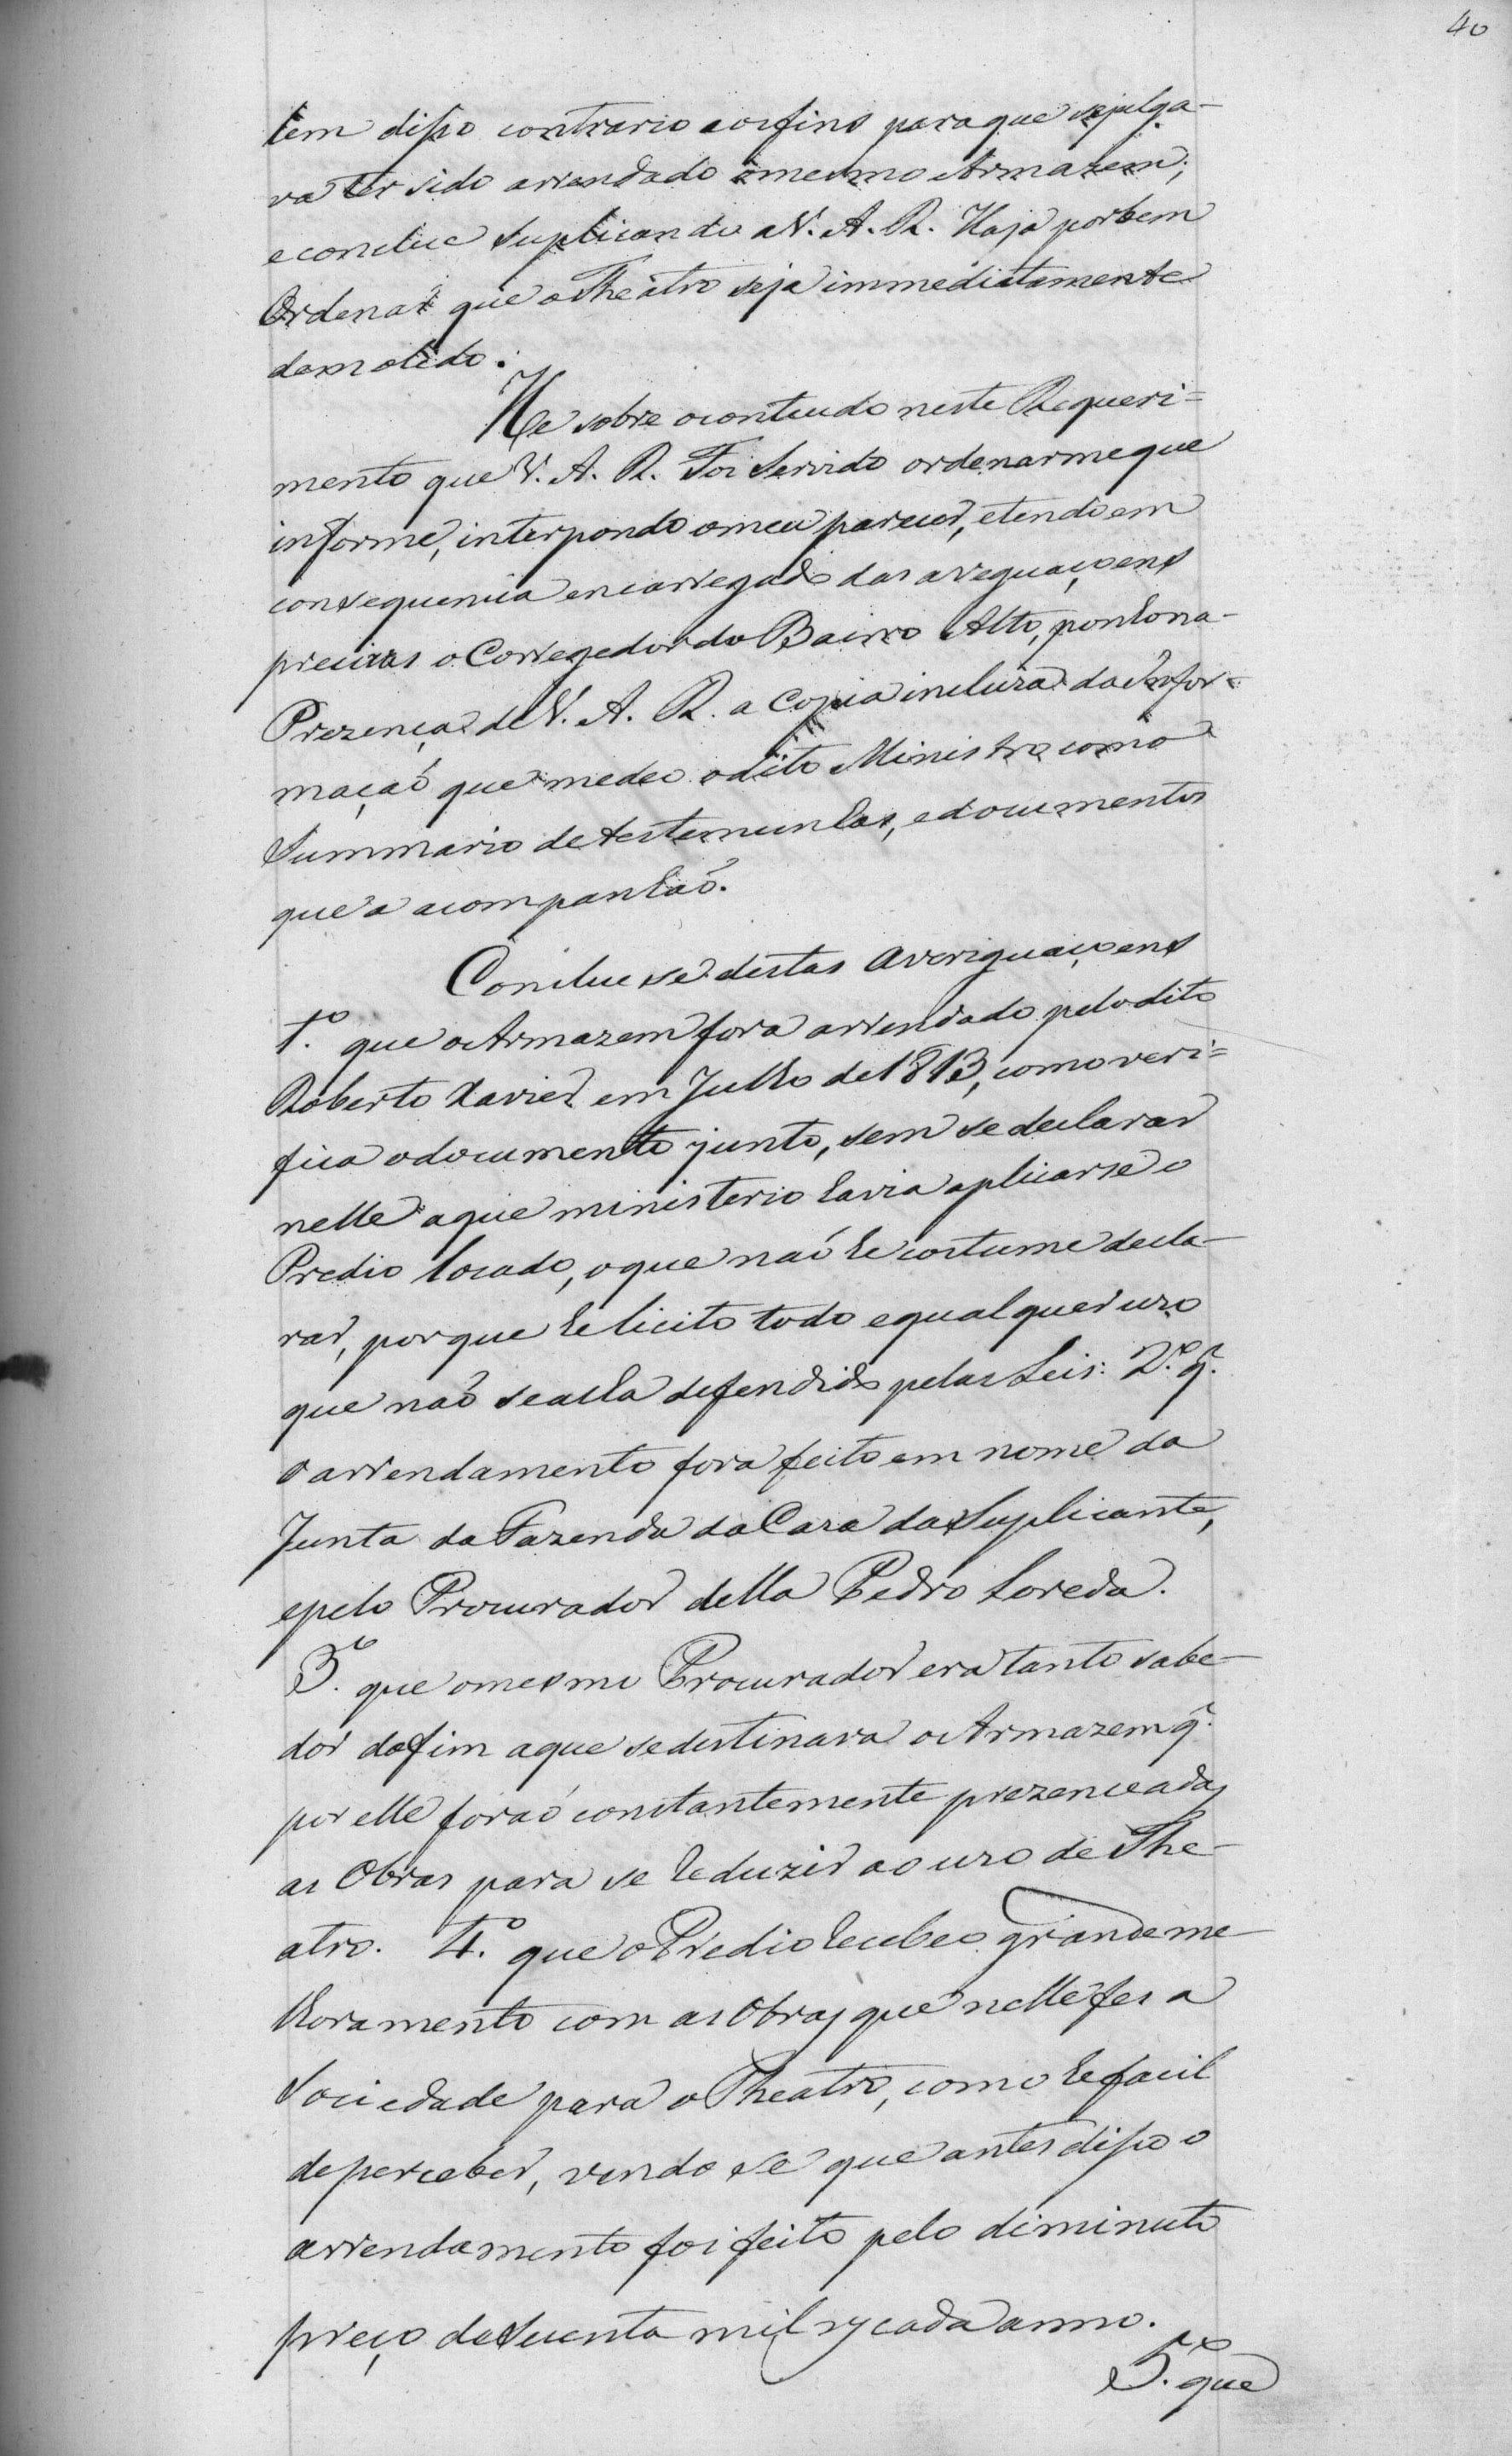 40
tem disso contrario aos fins paraque sejulga-
va ter sido arrendado o mesmo Armazem;
e conclue suplicando a V. A. R. Haja porbem
Ordenar que o Theatro seja immediatamente
demolido.
He sobre o conteudo neste Requeri=
mento que V. A. R. Foi Servido ordenarme que
informe, interpondo o meu parecer, e tendo em
consequencia encarregado das aveguaçoens
precizas o Corregedor do Bairro Alto, ponho na
Prezença de V. A. R. a Copia incluza da Infor=
maçaõ que me deo o dito Ministro com o
Summario de testemunhas, e documentos
que a acompanhaõ.
Conclue se destas averiguaçoens
1.º que o Armazem fora arrendado pelo dito
Roberto Xavier em Julho de 1813, como veri=
fica o documento junto, sem se declarar
nelle a que ministerio havia aplicarse o
Predio locado, o que naõ he costume decla-
rar, porque he licito todo e qualquer uzo
que naõ se acha defendido pelas Leis: 2.º q̃.
o arrendamento fora feito em nome da
Junta da Fazenda da Caza da Suplicante,
e pelo Procurador della Pedro Loreda.
3.º que o mesmo Procurador era tanto sabe-
dor do fim a que se destinava o Armazem q̃.
por elle foraõ constantemente prezenceadas
as Obras para se reduzir ao uzo de The-
atro. 4.º que o Predio recebeo grande me-
lhoramento com as Obras que nelle fes a
Sociedade para o Theatro, como he facil
de perceber, vendo se que antes disso o
arrendamento foi feito pelo diminuto
preço de secenta mil rs cada anno.
5.º que